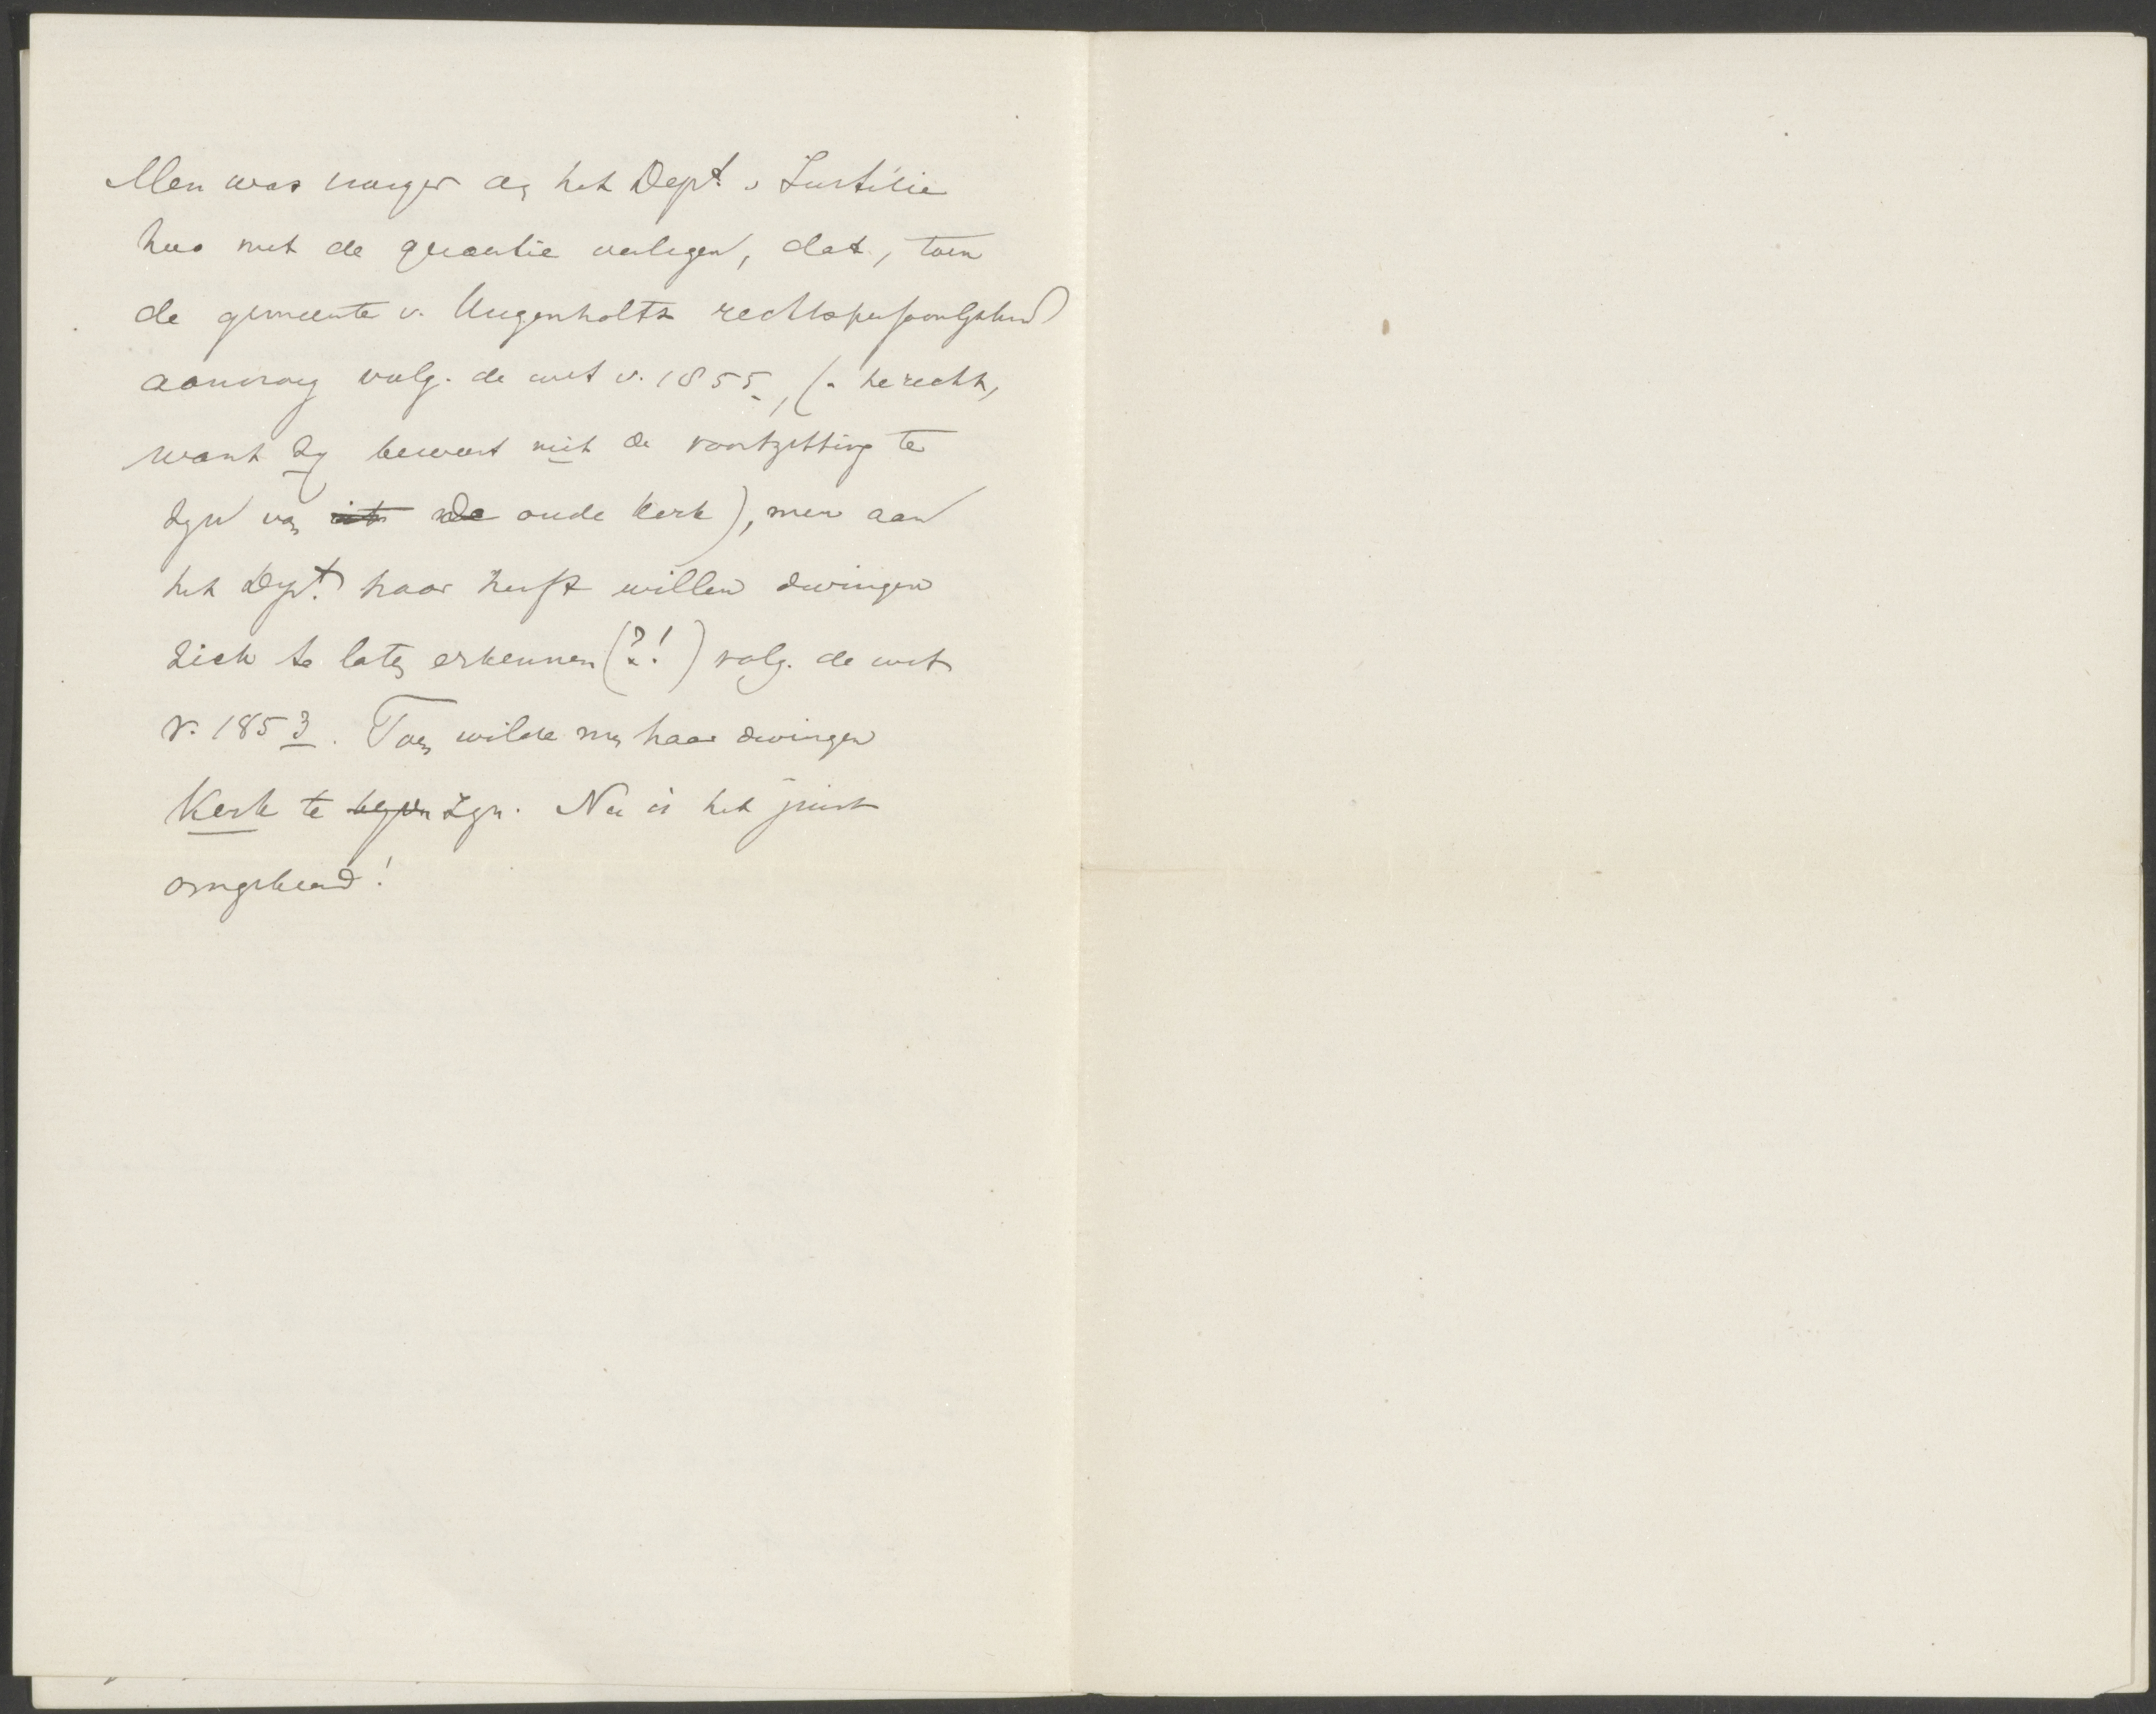 Men was vroeger aan het Dept. v Justitie
zoo met de quaestie verlegen, dat, toen
de gemeente v. Hugenholtz rechtspersoonlykheid
aanvroeg volg. de wet v. 1855, (- te recht,
want zy beweert niet de voortzetting te
zyn van de oude kerk), men aan
het Dept. haar heeft willen dwingen
zich te laten erkennen (?!) volg. de wet
v. 1853. Toen wilde men haar dwingen
Kerk te zyn. Nu is het juist
omgekeerd!